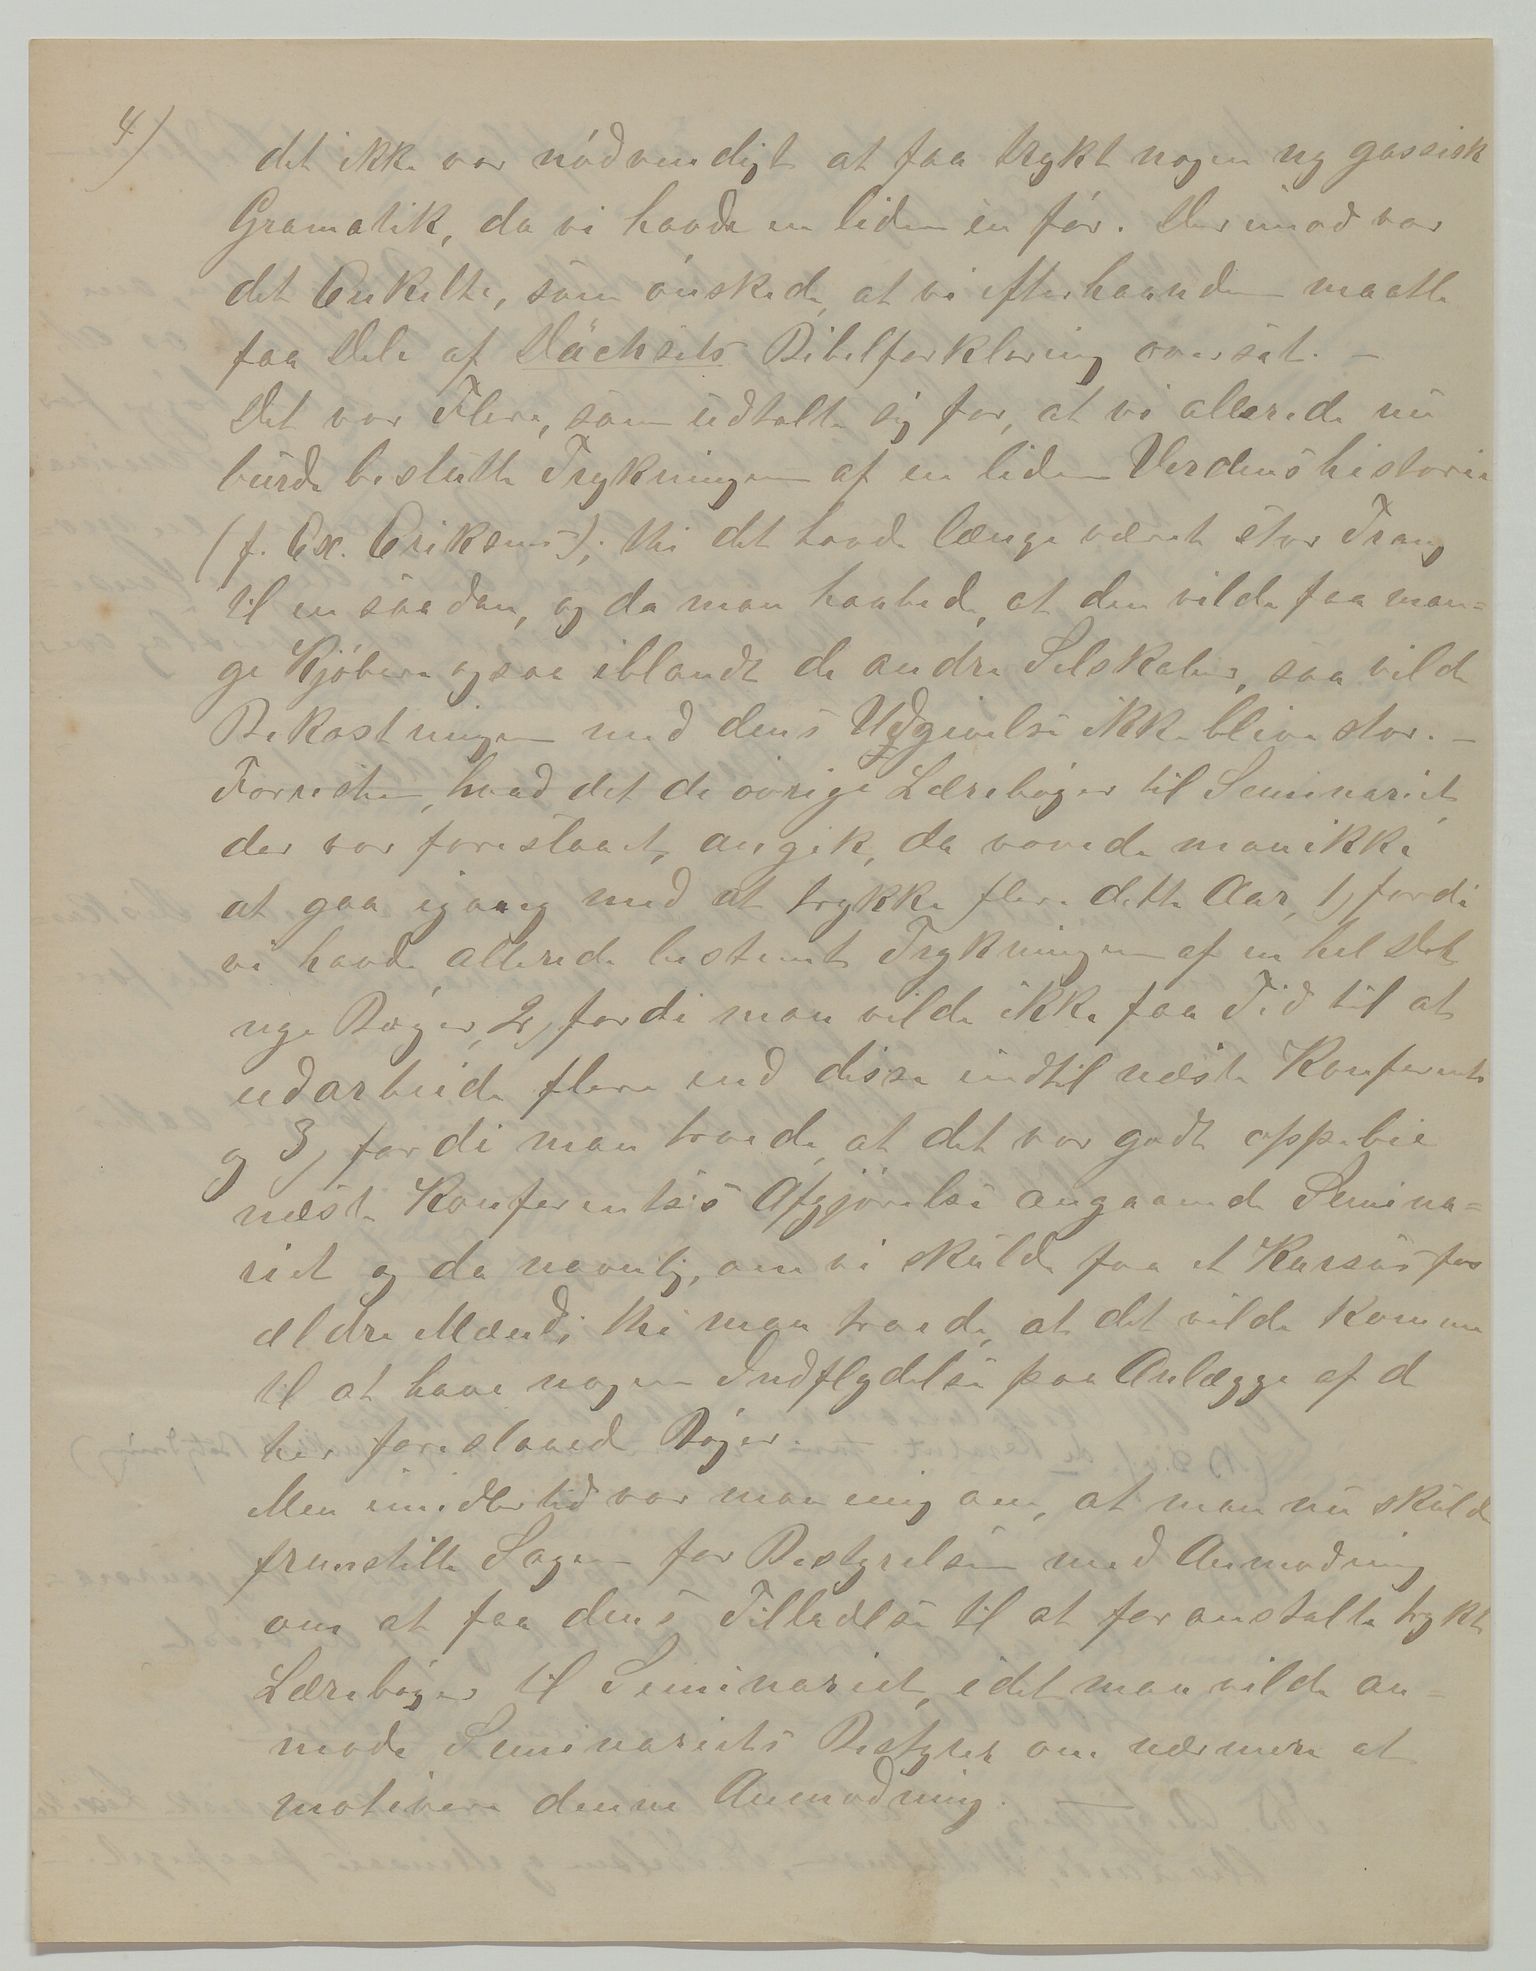 4)
det ikke var nödvendigt at faa trykt nogen ny gassisk
Gramatik, da vi havde en liden én för. Derimod var
det Enkelte, som önskede, at vi efterhaanden maatte
faa Dele af Dächsels Bibelforklaring oversat. –
Det var Flere, som udtalte sig for, at vi allerede nu
burde beslutte Trykningen af en liden Verdenshistorie
(f. Ex. Eriksens); thi det havde længe været stor Trang
til en saadan, og da man haabede, at den vilde faa man=
ge Kjöbere ogsaa iblandt de andre Selskaber, saa vilde
Bekostningen med dens Udgivelse ikke blive stor. –
Forresten, hvad det de övrige Læreböger til Seminariet,
der var foreslaaet, angik, da vovede man ikke
at gaa igang med at trykke flere dette Aar, 1, fordi
vi havde allerede bestemt Trykningen af en hel Del
nye Böger, 2, fordi man vilde ikke faa Tid til at
udarbeide flere end disse indtil næste Konferents
og 3, fordi man troede, at det var godt oppebie
næste Konferentses Afgjörelse angaaende Semina=
riet og da navnlig, om vi skulde faa et Kursus for
ældre Mænd; thi man troede, at det vilde komme
til at have nogen Indflydelse paa Anlægge af d
her foreslaaed Böger. –
Men imidlertid var man enig om, at man nu skulde
fremstille Sagen for Bestyrelsen med Anmodning
om at faa dens Tilladelse til at foranstalte trykt
Læreböger til Seminariet, idet man vilde an=
mode Seminariets Bestyrer om nærmere at
motivere denne Anmodning.